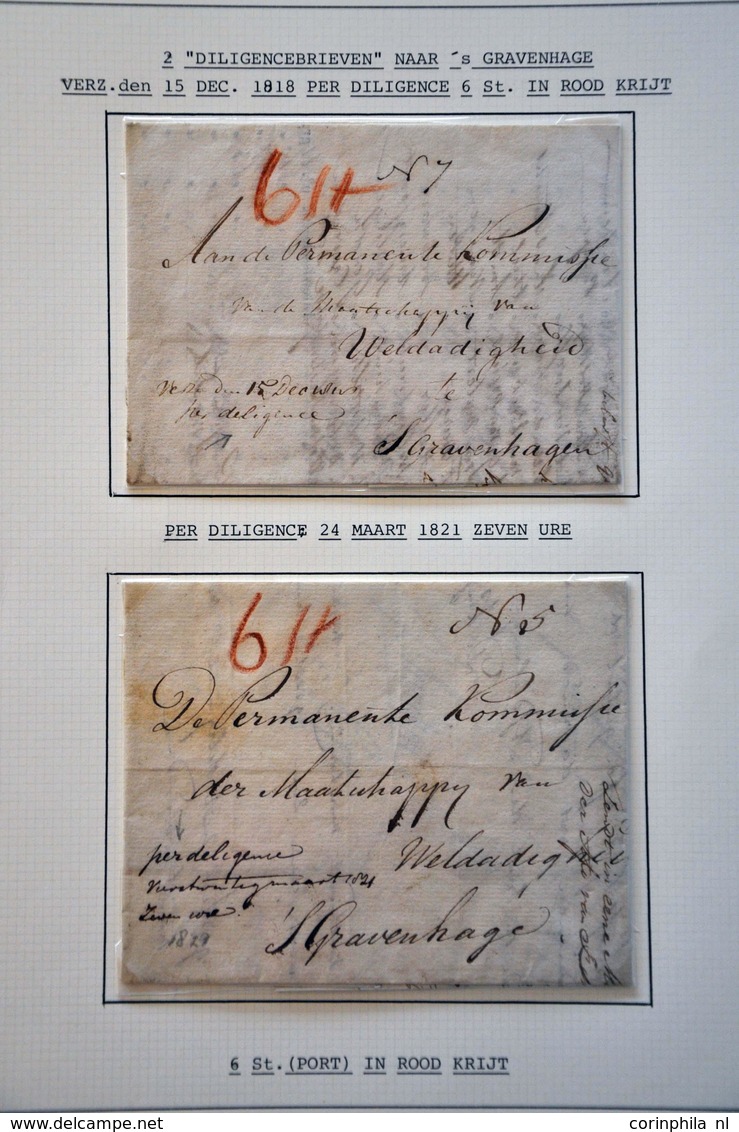 2 "DILIGENCEBRIEVEN" NAAR ´s GRAVENHAGE
VERZ.den 15 DEC. 1818 PER DILIGENCE 6 St. IN ROOD KRIJT
6 St
N 7
Aan de Permanente Kommissie
van de Maatschappij van
Weldadigheid
den 15 Dec
te
per deligence
S Gravenhagen
PER DILIGENCE, 24 MAART 1821 ZEVEN URE
6 St
N 5
De Permanente Kommissie
der Maatschappy van
Weldadigheid
per deligence
maart 1821
Zeven ure
1821
'S Gravenhage
6 St.(PORT) IN ROOD KRIJT
corinphila nl